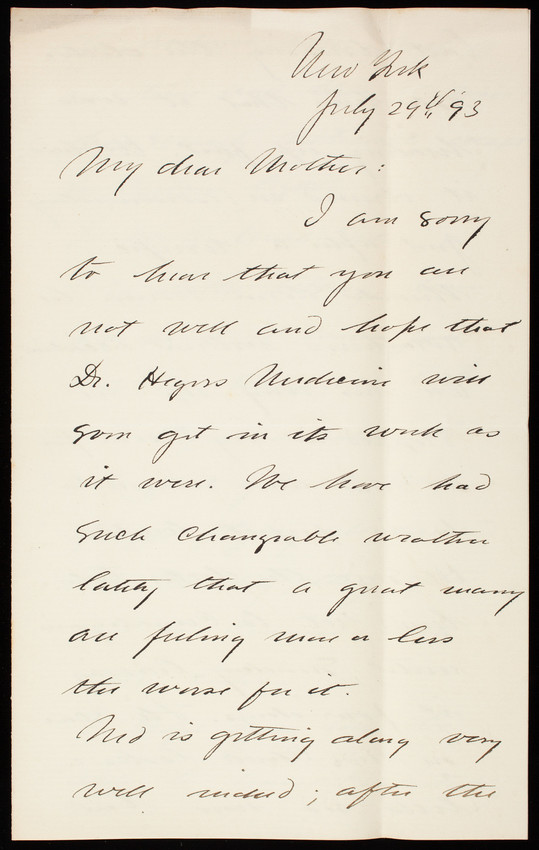 New York
July 29th '93
My dear Mother:
I am sorry
to hear that you are
not well and hope that
Dr. Hegers Medicine will
soon get in its work as
it were. We have had
such changeable weather
lately that a great many
are feeling more or less
the worse for it.
Ned is getting along very
well indeed; after the